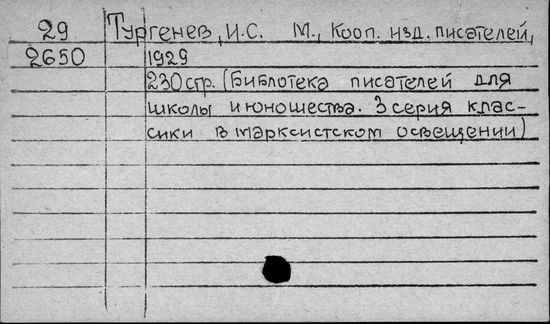 29 Тургенев, И.С. М., Кооп. изд. писателей,
2650 1929
230 стр. (Библиотека писателей для
школы и юношества. 3 серия клас-
сики в марксистском освещении)